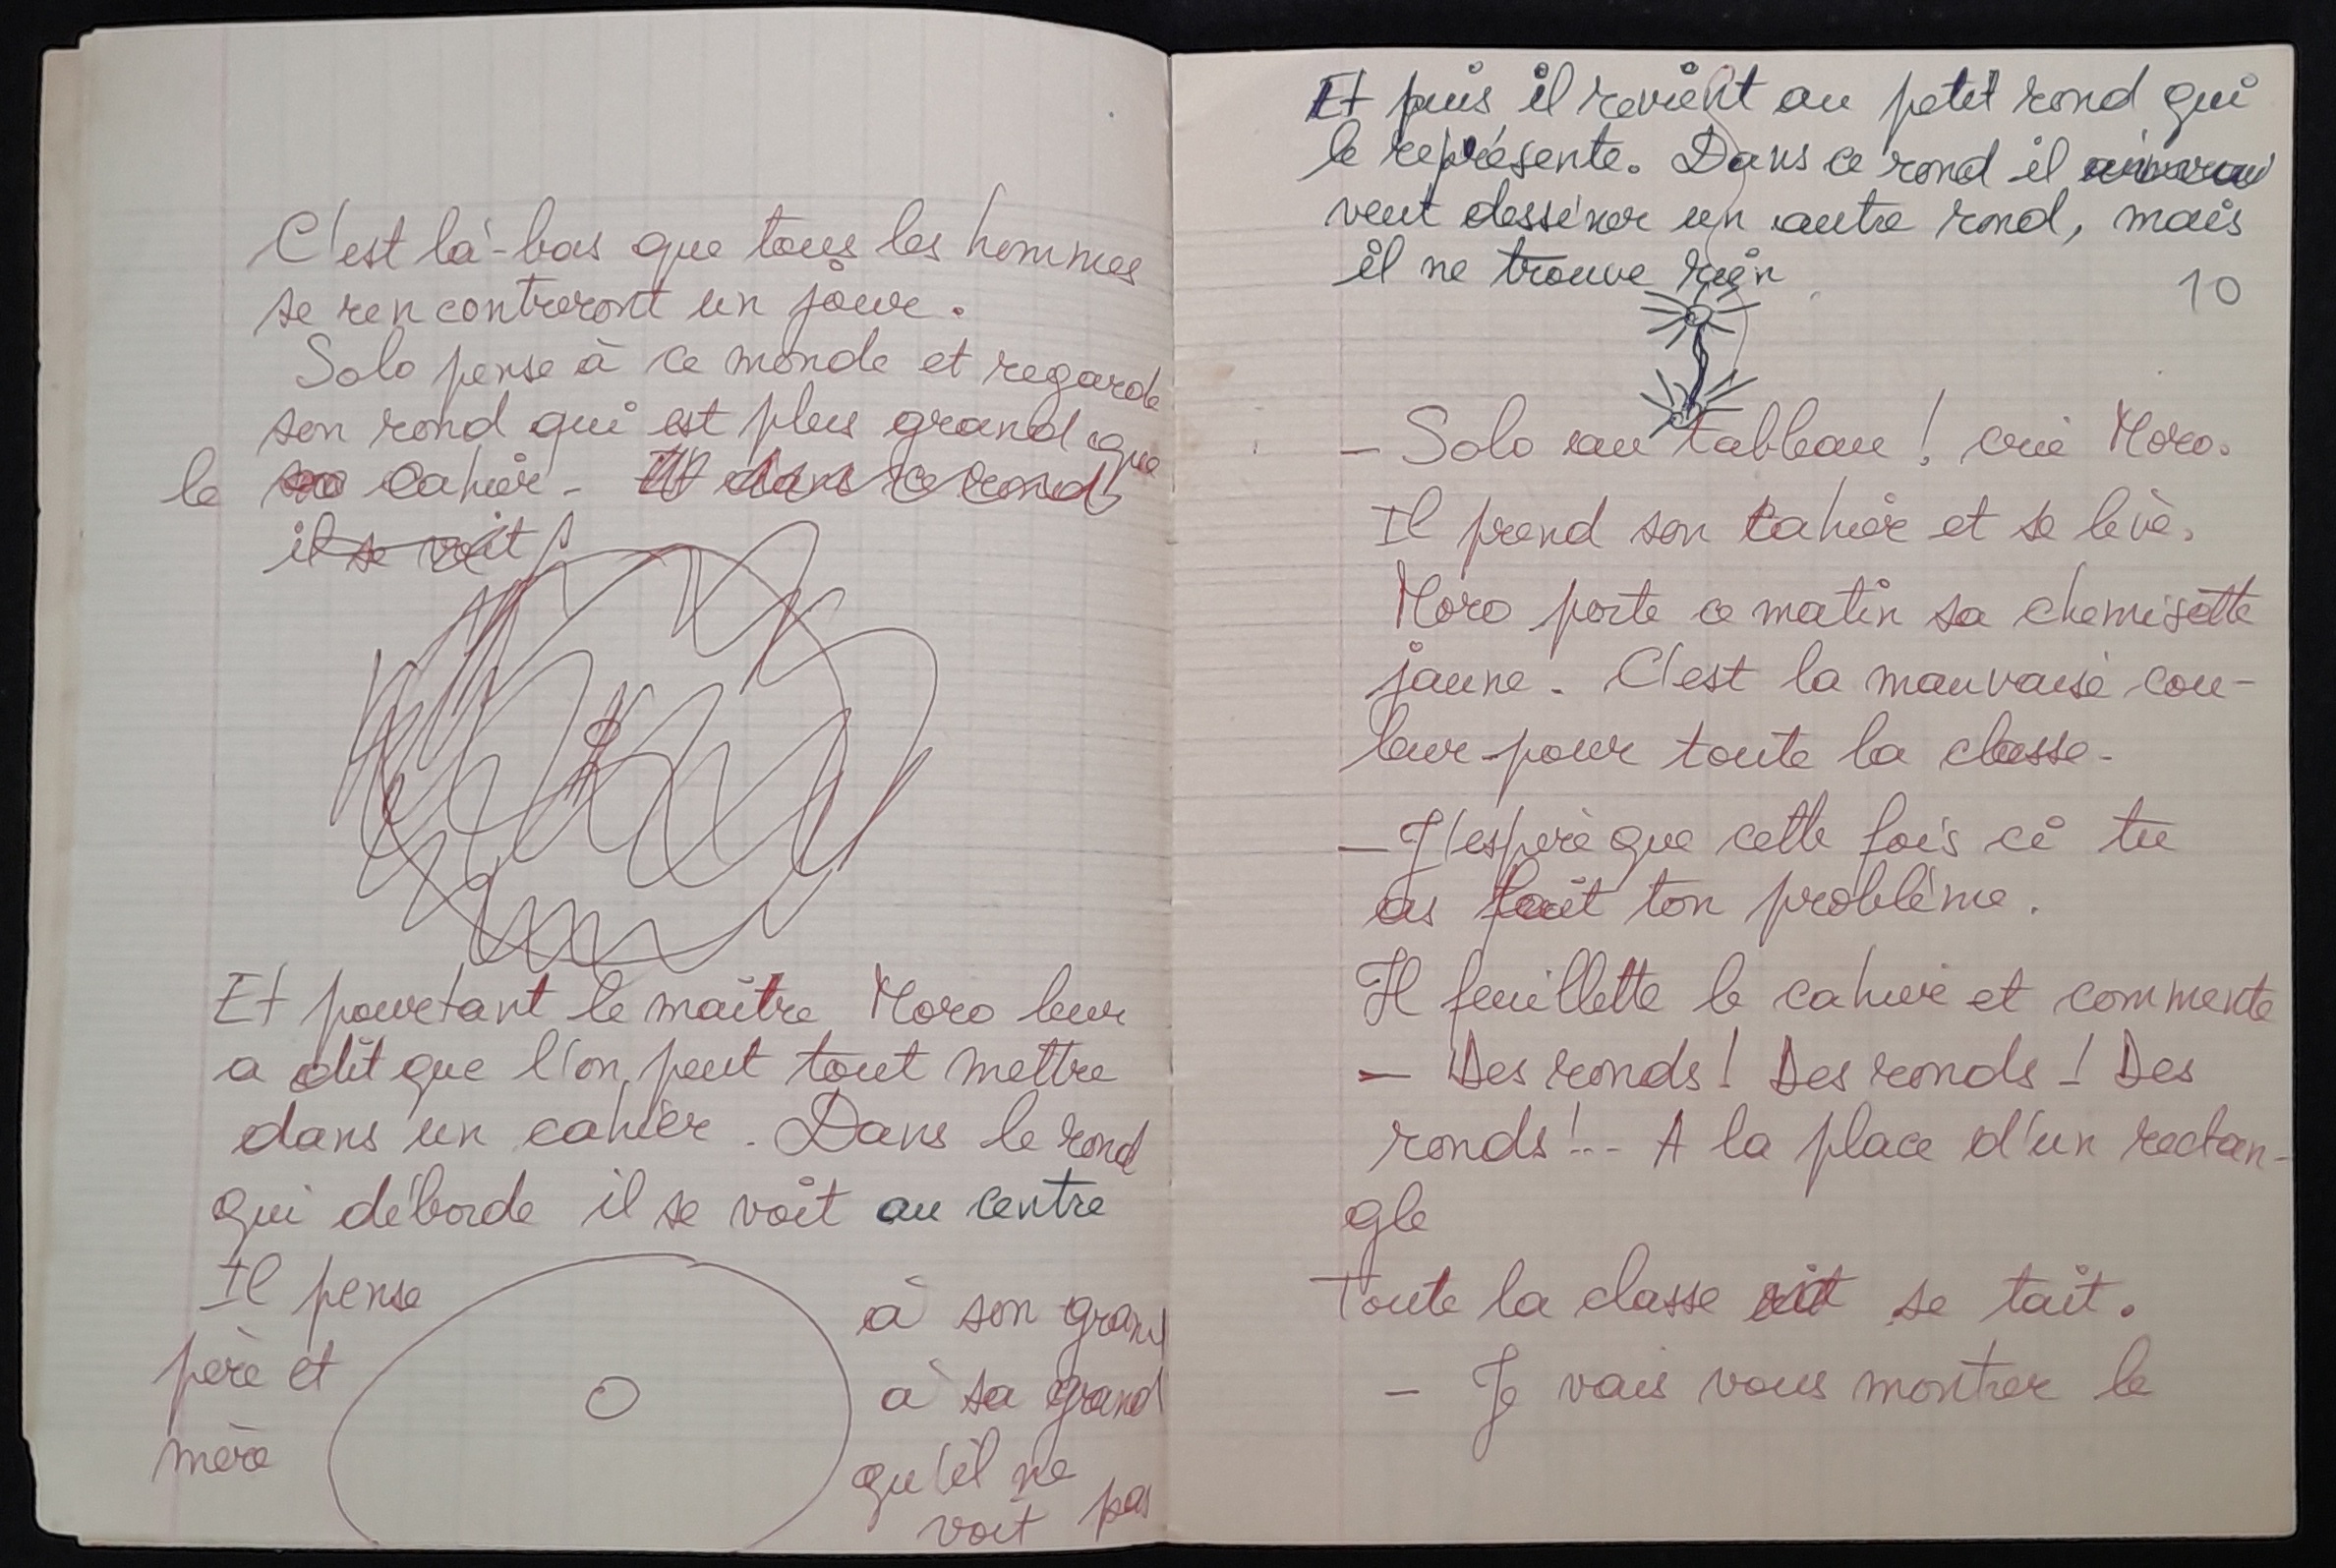 C'est là-bas que tous les hommes
se rencontreront un jour.
Solo pense à ce monde et regarde
son rond qui est plus grand que
le cahier. Et dans ce rond
il se voit
Et pourtant le maître Moro leur
a dit que l'on peut tout mettre
dans un cahier. Dans le rond
qui déborde il se voit au centre
Il pense à son grand
père et à sa grand
mère qu'il ne
voit pas
Et puis il revient au petit rond qui
le représente. Dans ce rond il
veut dessiner un autre rond, mais
il ne trouve rien
10
— Solo au tableau ! crie Moro.
Il prend son cahier et se lève.
Moro porte ce matin sa chemisette
jaune. C'est la mauvaise cou-
leur pour toute la classe.
— J'espère que cette fois ci tu
as fait ton problème.
Il feuillette le cahier et commente
— Des ronds ! Des ronds ! Des
ronds !... A la place d'un rectan-
gle
Toute la classe rit se tait.
— Je vais vous montrer le